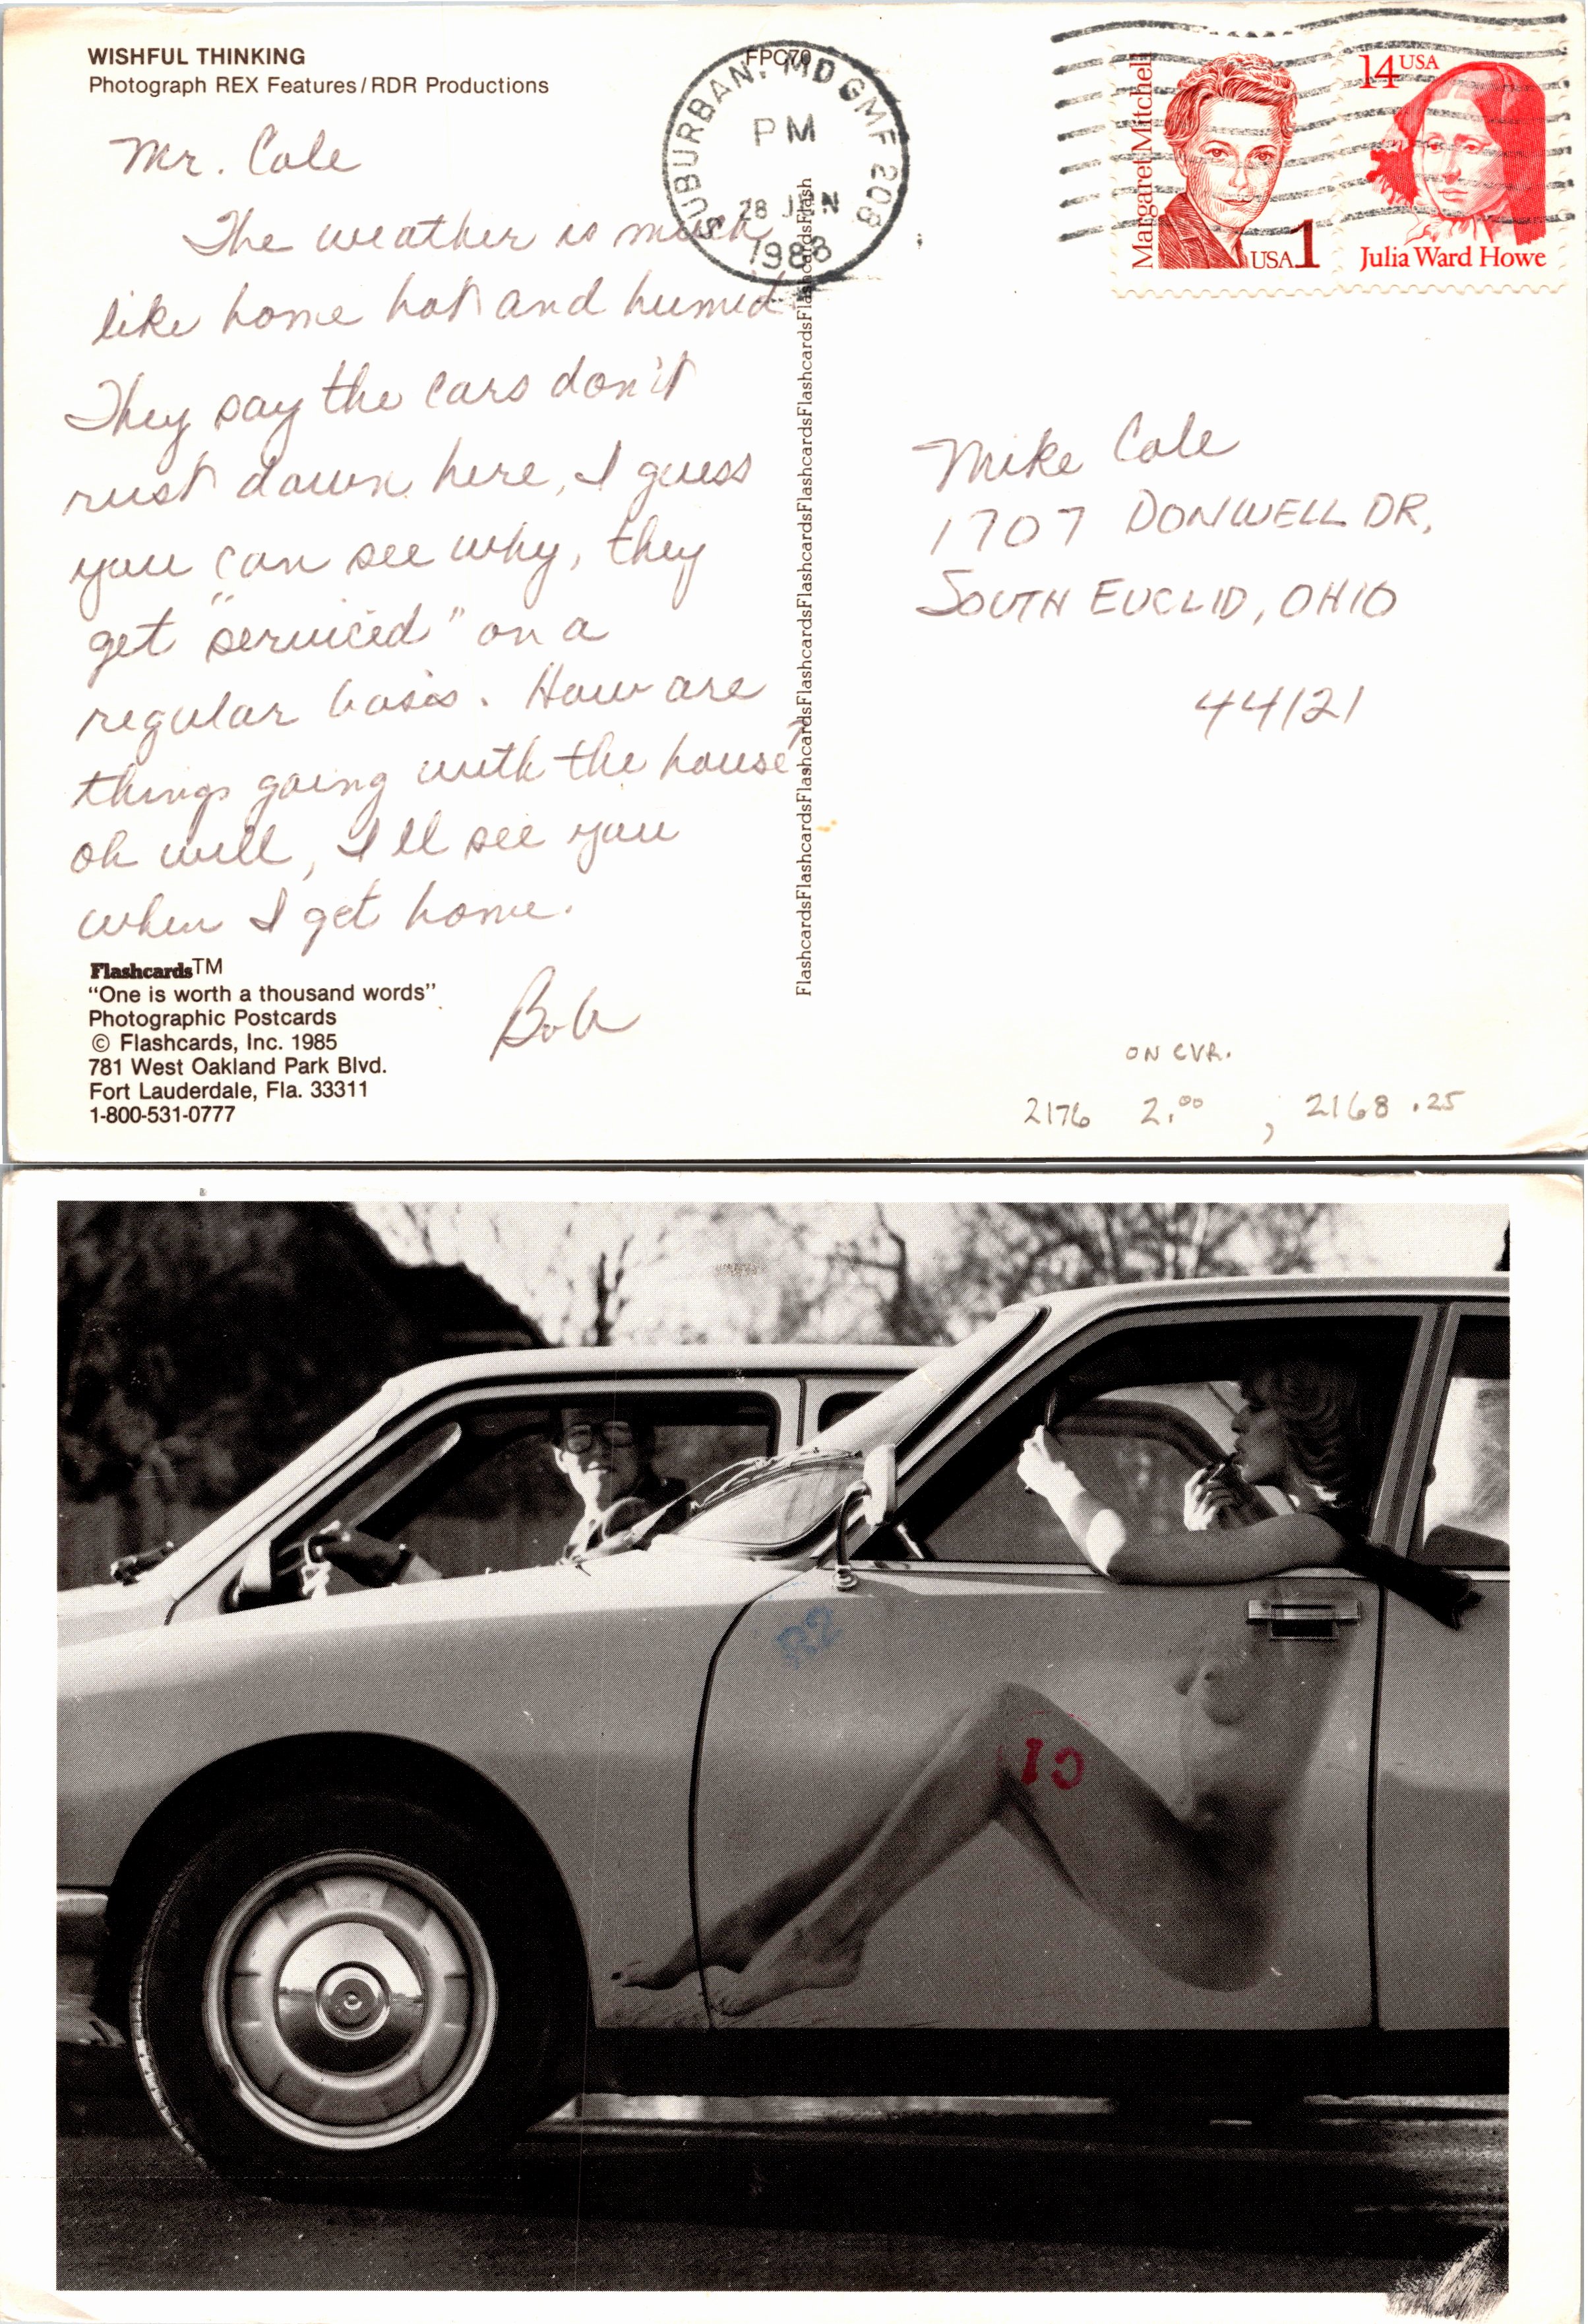 WISHFUL THINKING
Photograph REX Features/RDR Productions
FPC70
SUBURBAN, MD GMF 208
PM
28 JUN
1988
Margaret Mitchell
USA 1
14 USA
Julia Ward Howe
Mr. Cole
The weather is much
like home hot and humid
They say the cars don't
rust down here, I guess
you can see why, they
get "serviced" on a
regular basis. How are
things going with the house?
oh well, I'll see you
when I get home.
Bob
FlashcardsFlashcardsFlashcardsFlashcardsFlashcardsFlashcardsFlashcardsFlashcardsFlash
Mike Cole
1707 DONWELL DR,
SOUTH EUCLID, OHIO
44121
Flashcards™
"One is worth a thousand words"
Photographic Postcards
© Flashcards, Inc. 1985
781 West Oakland Park Blvd.
Fort Lauderdale, Fla. 33311
1-800-531-0777
ON CVR.
2176 2.00 , 2168 .25
R2
C1